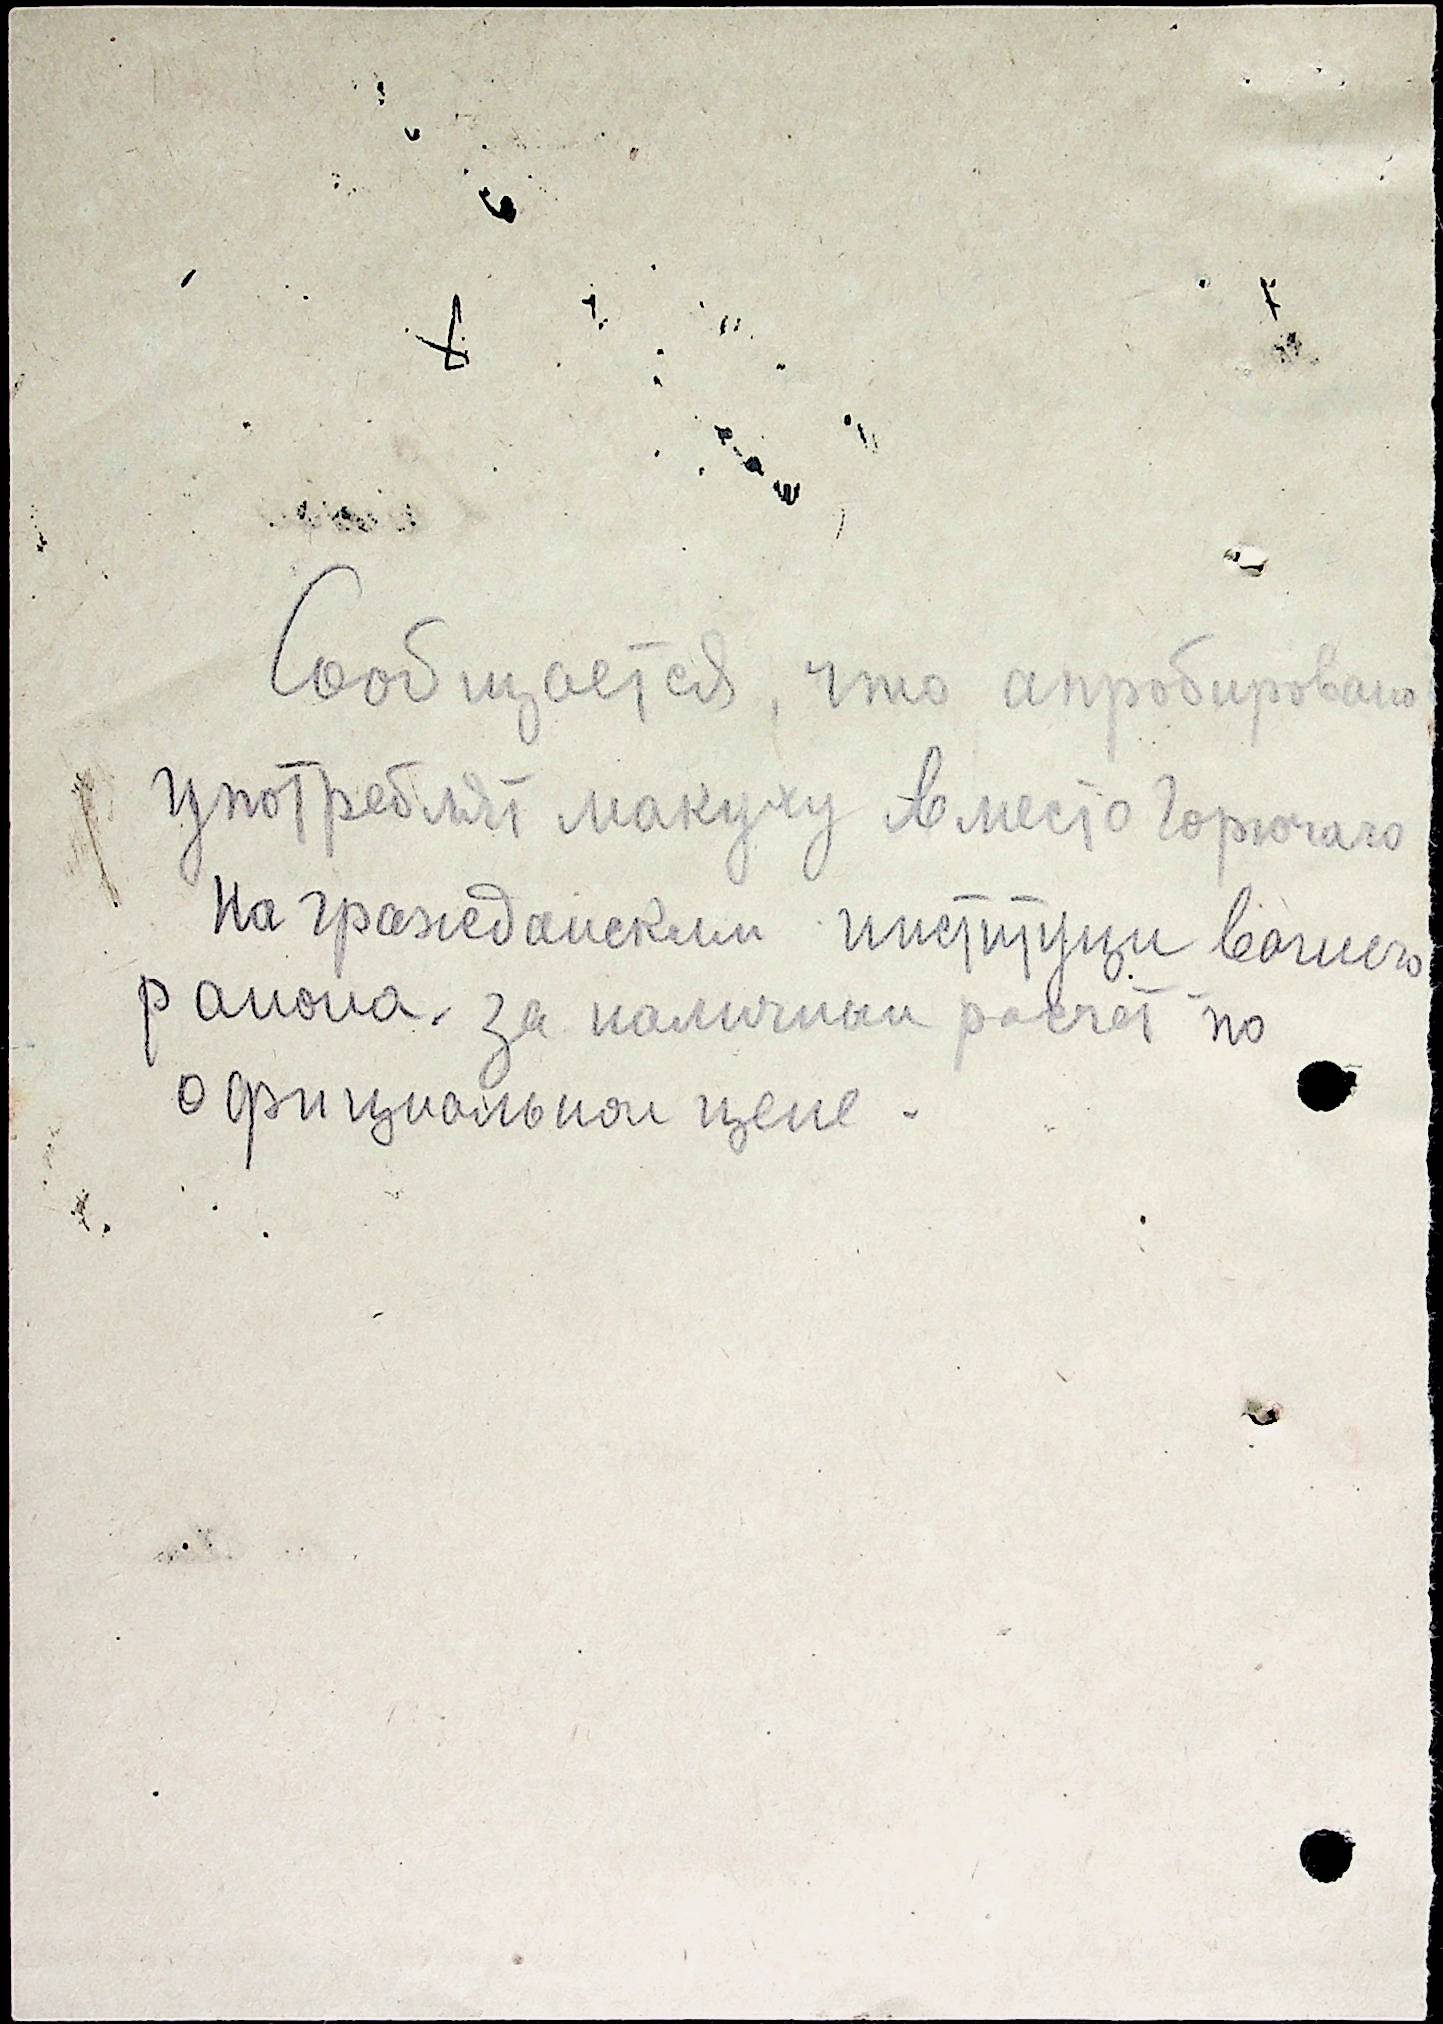 Сообщается, что апробировано
употреблят макуху вместо горючаго
на гражедански институци вашего
раиона. за наличныи расчет по
официальнои цене.